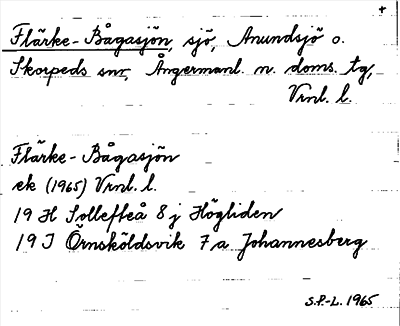 +
Flärke-Bågasjön, sjö, Anundsjö o.
Skorpeds snr, Ångermanl. n. doms. tg,
Vrnl. l.
Flärke-Bågasjön
ek (1965) Vrnl. l.
19 H Sollefteå 8 j Högliden
19 J Örnsköldsvik 7 a Johannesberg
S.P.-L. 1965